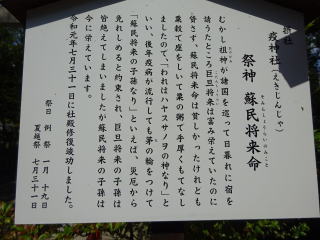 摂社
疫神社（えきじんじゃ）
祭神 蘇民将来命
そみんしょうらいのみこと
むかし祖神が諸国を巡って日暮れに宿を
請うたところ巨旦将来は富み栄えていたのに
貸さず、蘇民将来今は貧しかったけれども
粟殻で座をしいて粟の粥で手厚くもてなし
ましたので、「われはハヤスサノヲの神なり」と
いい、後年疫病が流行しても茅の輪をつけて
「蘇民将来の子孫なり」といえば、災厄から
免れしめると約束され、巨旦将来の子孫は
皆絶えてしまいましたが蘇民将来の子孫は
今に栄えています。
令和元年七月三十一日に社殿修復竣功しました。
祭日 例祭 一月十九日
夏越祭 七月三十一日